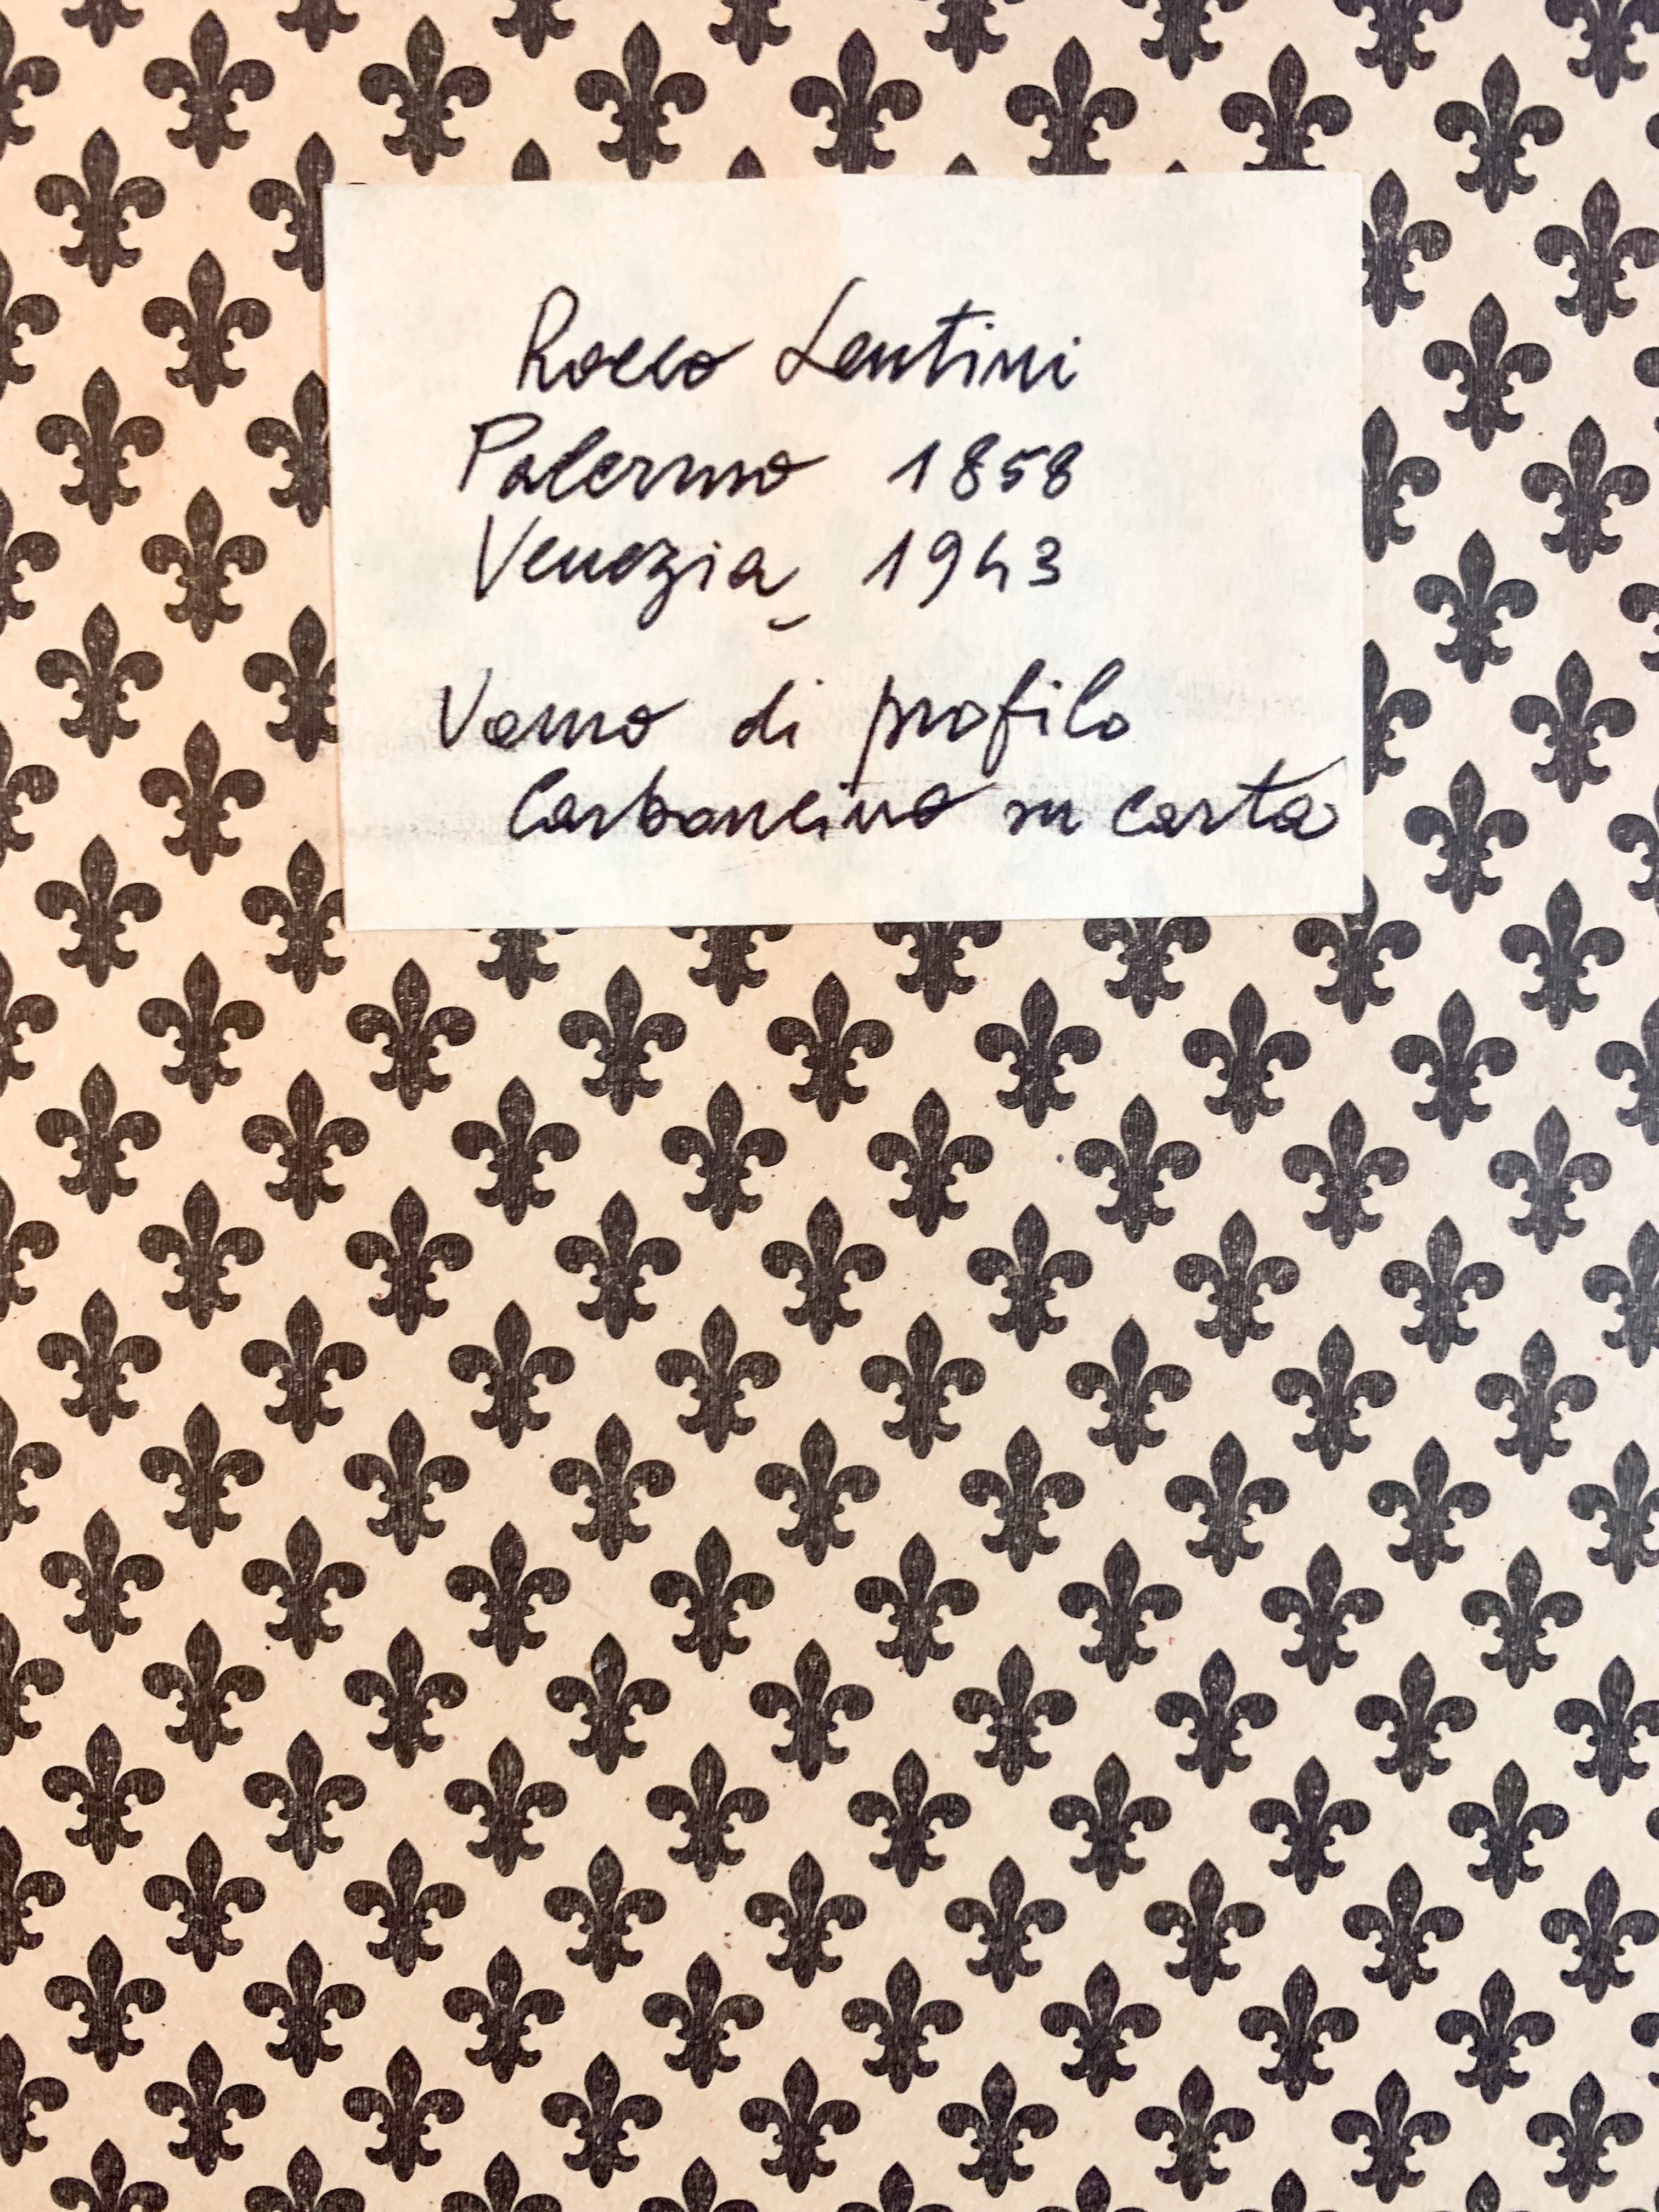 Rocco Lentini
Palermo 1858
Venezia 1943
Uomo di profilo
Carboncino su carta